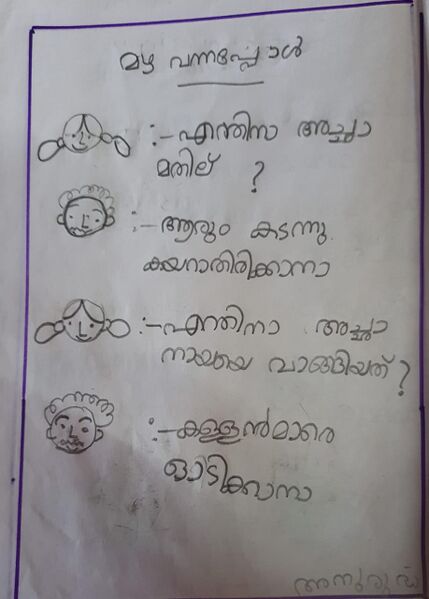 മഴ വന്നപ്പോൾ
:- എന്തിനാ അച്ഛാ
മതില് ?
:- ആരും കടന്നു
കയറാതിരിക്കാനാ
:- എന്തിനാ അച്ഛാ
നായയെ വാങ്ങിയത് ?
:- കള്ളൻമാരെ
ഓടിക്കാനാ
അനുരുദ്ധ്